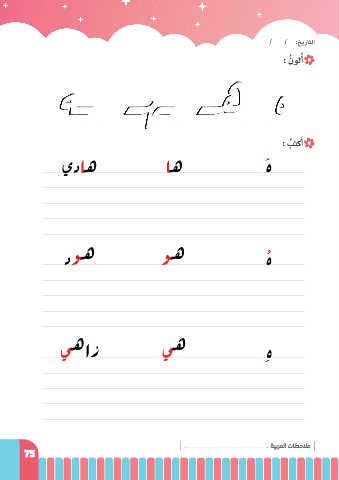 التاريخ: / /
ألونُ :
ه هـ ـهـ ـه
أكتبُ :
هَ ها هادي
هُ هو هود
هِ هي زاهي
ملاحظات المربية
75